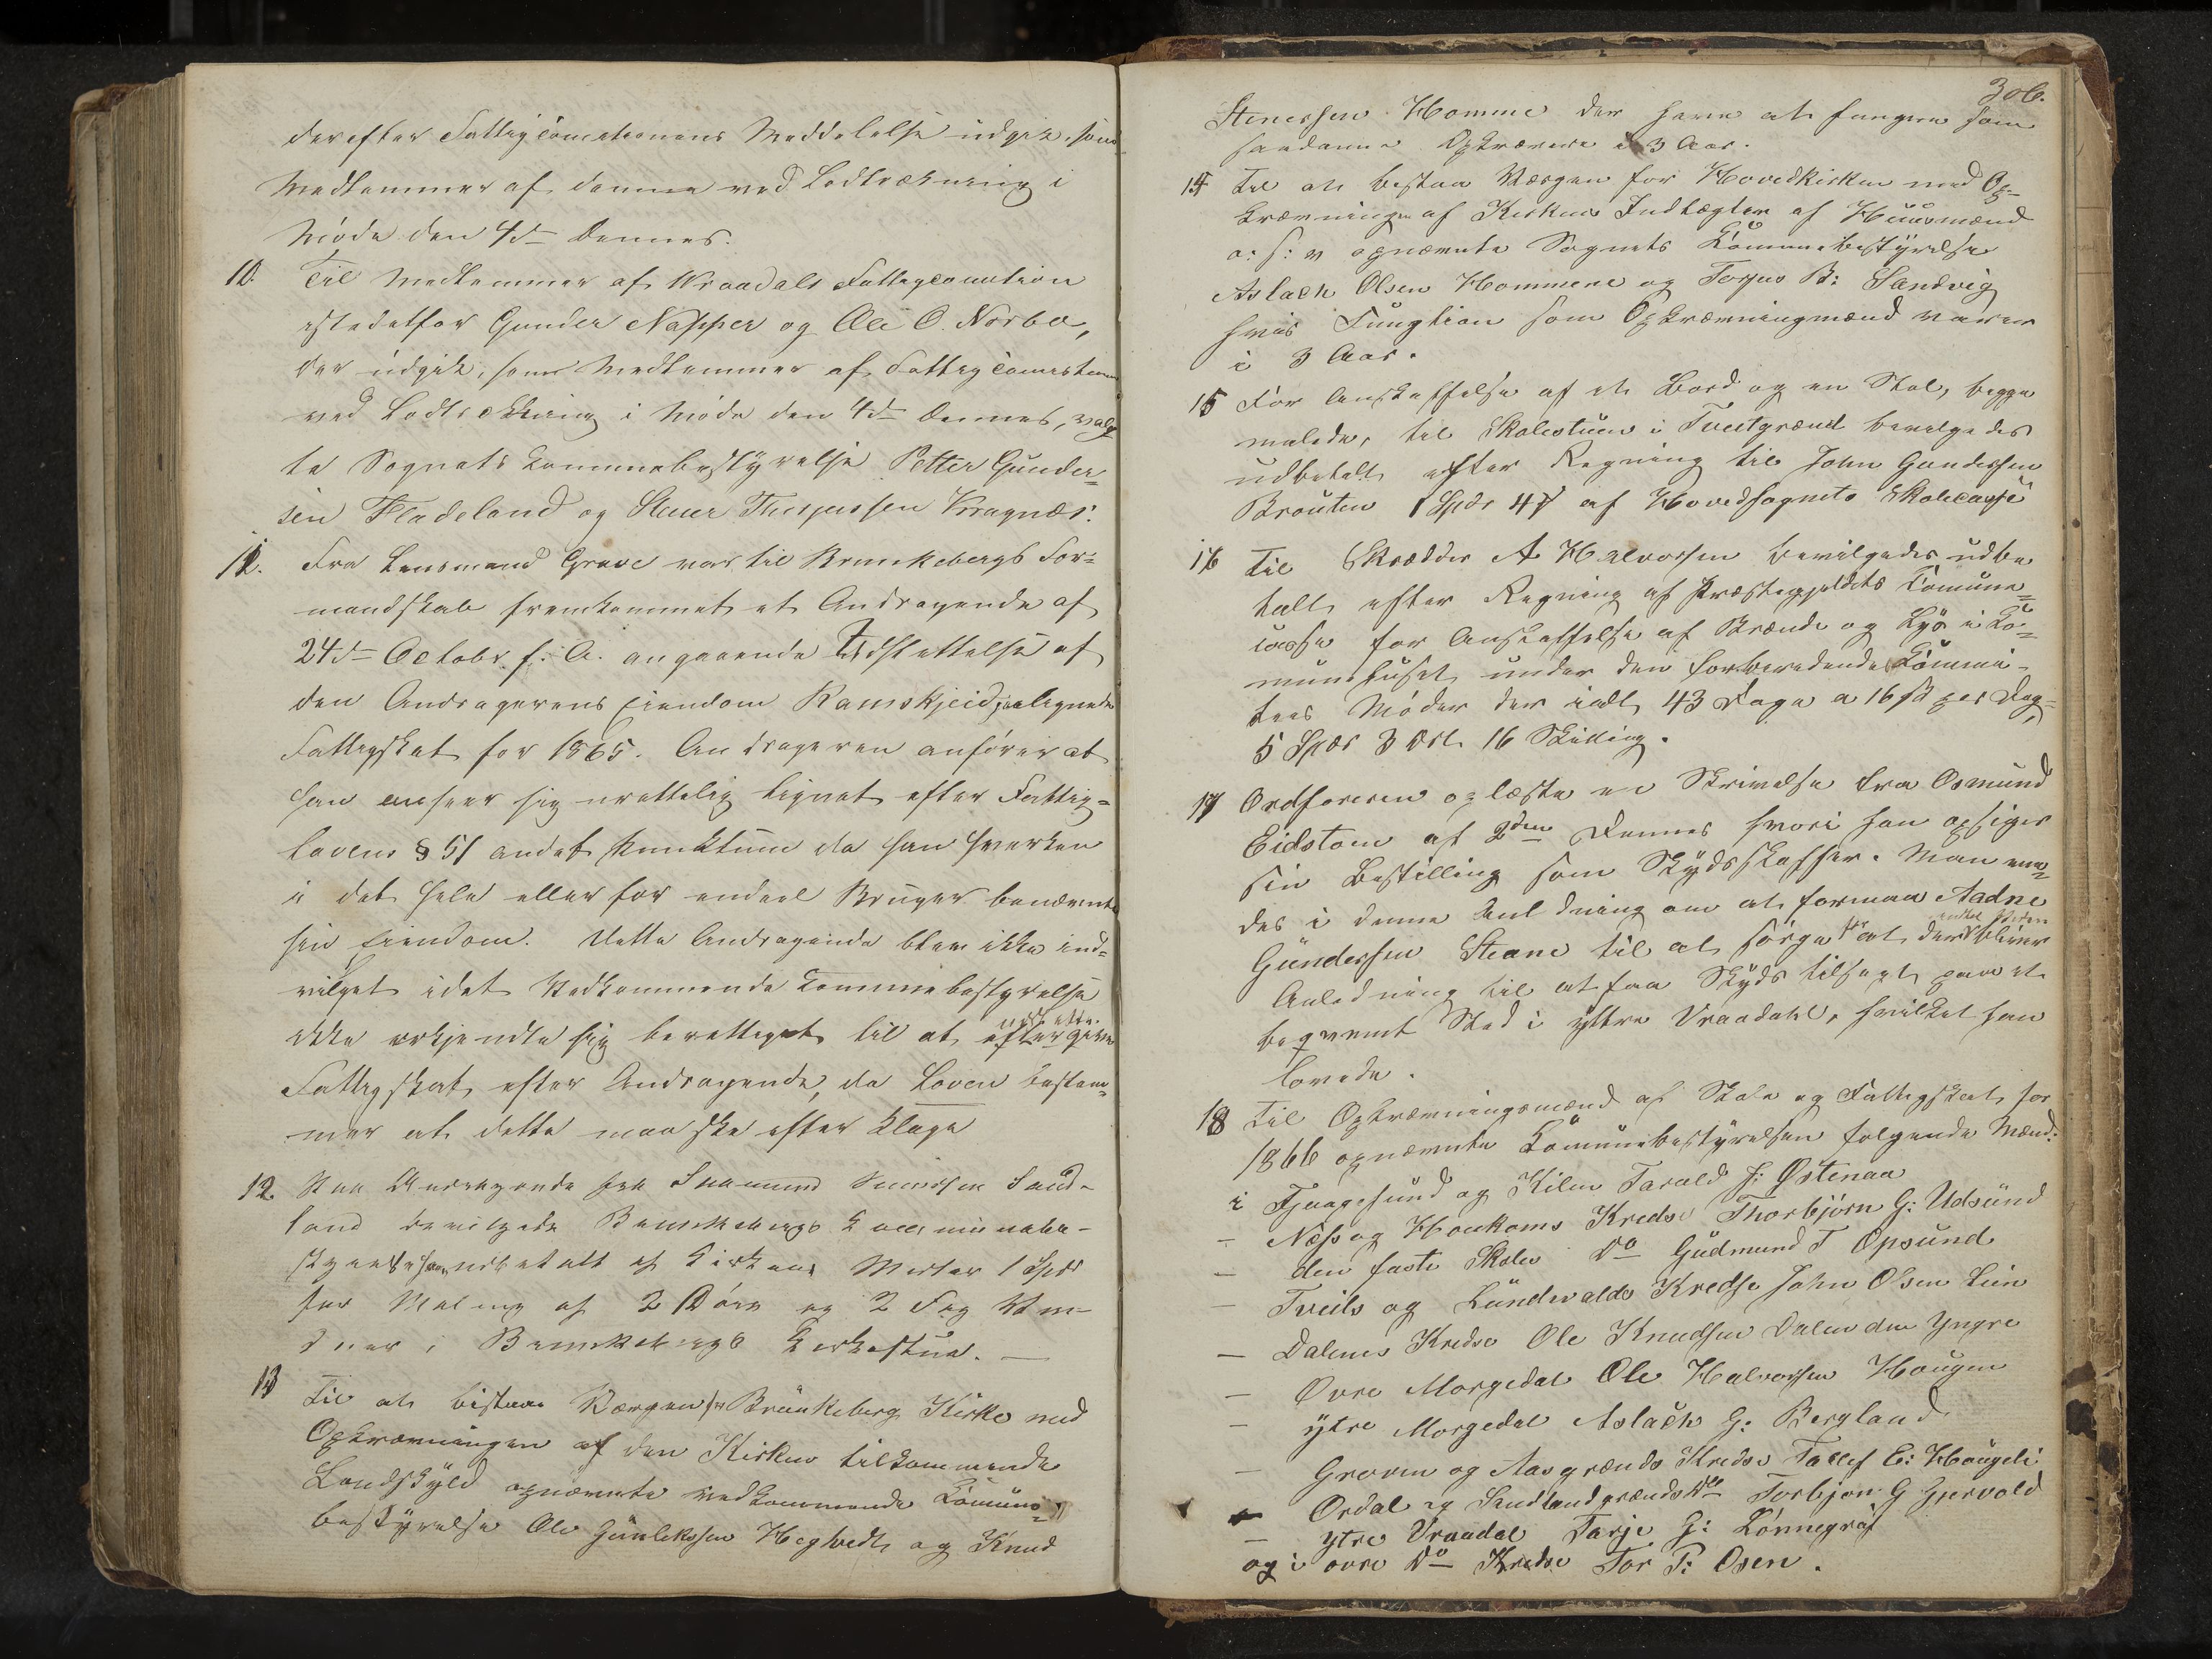 derefter Fattigcomitionens Meddelelse udgik som
Medlemmer af denne ved Lodtrækning i
Møde den 4de Dennes.
10. Til Medlemmer af Vraadals Fattigcomition
istedetfor Gunder Napper og Ole O. Norbø,
der udgik, som Medlemmer af Fattigcomistionen
ved Lodtrækning i Møde den 4de Dennes, valg
te Sognets Communebestyrelse Petter Gunder=
sen Fladeland og Stener Thorjussen Kragnæs.
11. Fra Lensmand Grave var til Brunkebergs For=
mandskab fremkommet et Andragende af
24de Octobr f. A. angaaende Udslettelse af
den Andragerens Eiendom Ramskjeid, paalignede
Fattigskat for 1865. Andrageren anfører at
han anseer sig urettelig lignet efter Fattig=
lovens § 51 andet Punktum da han hverken
i det hele eller for endeel Bruger benævnte
sin Eiendom. Dette Andragende blev ikke ind=
vilget idet Vedkommende Communebestyrelse
ikke erkjendte sig berettiget til at eftergive
Fattigskat, efter Andragende, da Loven bestem=
mer at dette maa ske efter Klage
12. Paa Andragende fra Saamund Sand=
land bevilgede Brunkebergs Communebe-
styrelse udbetalt af Kirkens Midler 1 Spd
for Maling af 2 Døre og 2 Fag Vin-
duer i Brunkebergs Kirkestue. —
13 Til at bistaa Værgen for Brunkeberg Kirke med
Opkrævningen af den Kirken tilkommende
Landskyld opnævnte vedkommende Commune=
bestyrelse Ole Gunleksen Heghvedt og Knud
306.
Stenersen Homme der have at fungere som
saadanne Opkrævere i 3 Aar.
14 Til at bistaa Værgen for Hovedkirken med Op=
krævningen af Kirkens Indtægter af Huusmænd
o: s: v opnævnte Sognets Communebestyrelse
Aslach Olsen Hommene og Torjus B: Sandvig
hvis Fungtion som Opkrævningmænd varer
i 3 Aar.
15 For Anskaffelse af et Bord og en Stol, begge
malede, til Skolestuen i Tveitgrænd bevilgedes
udbetalt efter Regning til John Gundersen
Brauten 1 Spdr 4 af Hovedsognets Skolecasse
16 Til Skrædder A Halvorsen bevilgedes udbe
talt efter Regning af Præstegjeldets Commune=
casse for Anskaffelse af Brænde og Lys i Co=
munehuset under den forberedende Commi-
tees Møder der ialt 43 Dage a 16 ß per Dag=
5 Spdr 3 Ort 16 Skilling.
17 Ordføreren oplæste en Skrivelse fra Osmund
Eidstom af 2den Dennes hvori han opsiger
sin Bestilling som Skydsskaffer. Man een=
des i denne Anledning om at formaa Aadne
Gundersen Steane til at sørge for at der bliver
Anledning til at faa Skyds tilsagt paa et
beqvemt Sted i yttre Vraadahl, hvilket han
lovede.
18 Til Opkrævningsmænd af Skole og Fattigskat for
1866 opnævnte Communebestyrelsen følgende Mænd:
i Fjaagesund og Kilen Tarald J: Østenaa
– Næss og Haukoms Kredse Thorbjørn G: Udsund
– den faste Skoles Do Gudmund T Opsund
– Tveits og Lundevalds Kredse John Olsen Lien
– Dalenes Kredse Ole Knudsen Dalen den Yngre
– Øvre Morgedal Ole Halvorsen Haugen
– ytre Morgedal Aslach G: Bergland
– Groven og Aasgrænds Kredse Tallef E: Haugeli
– Ørdal og Sandlandgrænds Do Torbjøn G Gjervold
– ytre Vraadal Tarje G: Lønnegrav
og i øvre Do Kredse Tor P: Osen.